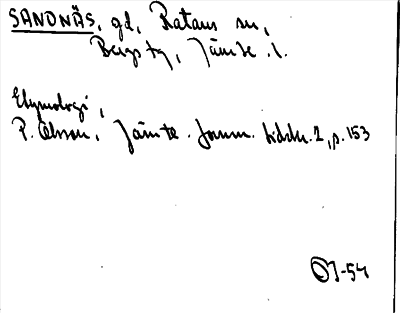 SANDNÄS, gd, Rätans sn,
Bergs tg, Jämtl. l.
Etymologi,
P. Olsson, Jämtl. fornm. tidskr. 2, p. 153
OJ-54